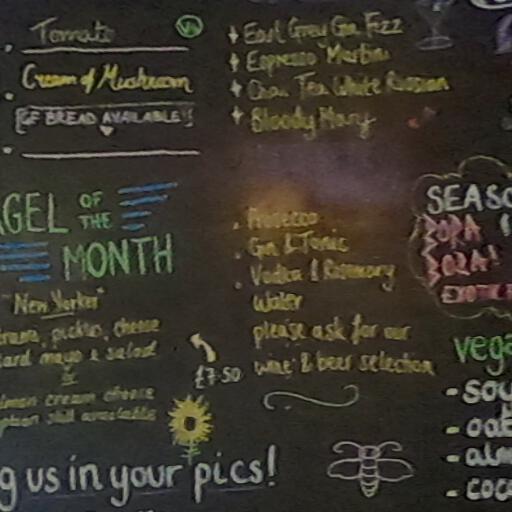 Tomato VN
Cream of Mushroom
GF BREAD AVAILABLE!
GEL OF THE
MONTH
"New Yorker"
pickles, cheese
mayo & salad
cream cheese
still available
£7.50
g us in your pics!
Earl Grey Gin Fizz
Espresso Martini
Chai Tea White Russian
Bloody Mary
Prosecco
Gin & Tonic
Vodka & Rosemary
Water
please ask for our
wine & beer selection
SEASO
vega
- soy
- oat
- alm
- coco